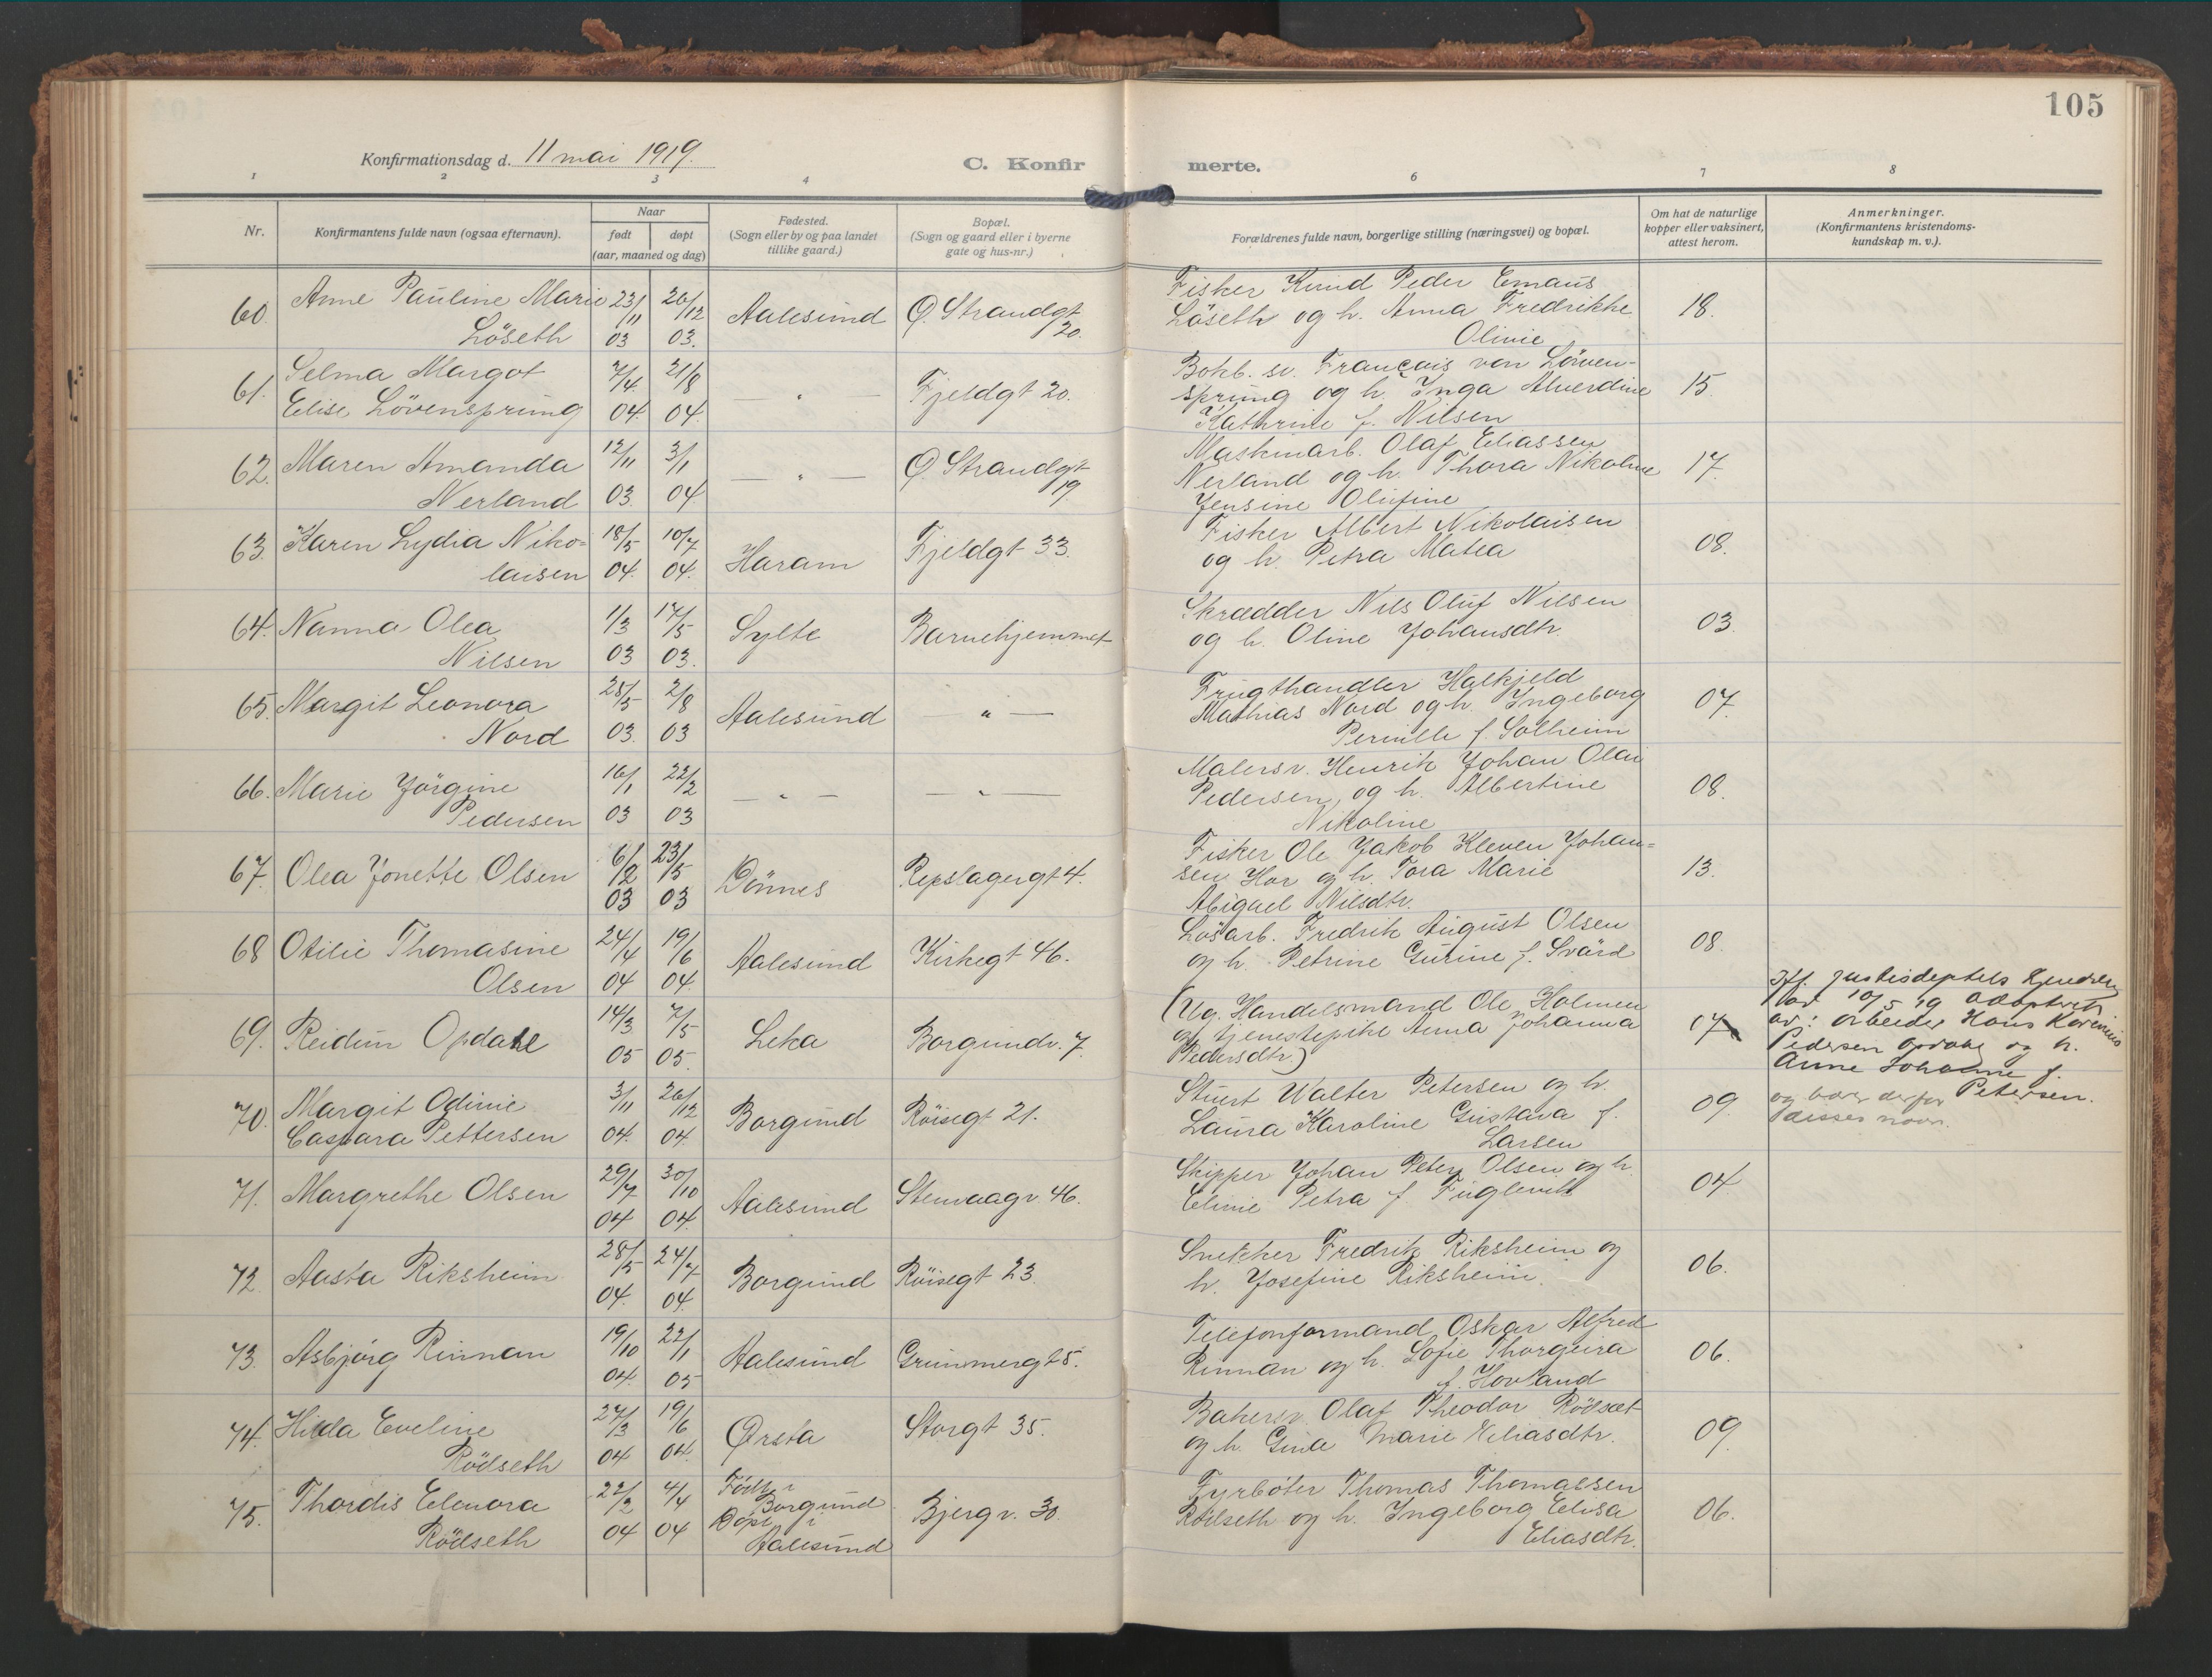 105
Konfirmationsdag d. 11 mai 1919.
C. Konfirmerte.
1 2 3 4 6 7 8
Nr.
Konfirmantens fulde navn (ogsaa efternavn).
Naar
født døpt
(aar, maaned og dag)
Fødested.
(Sogn eller by og paa landet
tillike gaard.)
Bopæl.
(Sogn og gaard eller i byerne
gate og hus-nr.)
Forældrenes fulde navn, borgerlige stilling (næringsvei) og bopæl.
Om hat de naturlige
kopper eller vaksinert,
attest herom.
Anmerkninger.
(Konfirmantens kristendoms-
kundskap m. v.).
60. Anne Pauline Marie 23/11 26/12 Aalesund Ø. Strandgt 20. Fisker Knud Peder Emaus
Löseth 03 03. Löseth og h. Anna Fredrikke 18.
Olivie
61. Selma Margot 7/4. 21/8 — " — Fjeldgt 20. Bokb. sv. Français von Löwen-
Elise Lövensprung 04. 04. sprung og h. Inga Alverdine 15.
Kathrine f. Nilsen
62. Maren Amanda 12/11 3/1 — " — Ø Strandgt 19 Maskinarb. Olaf Eliassen
Nerland 03. 04 Nerland og h. Thora Nikoline 17.
Jensine Olufine
63. Karen Lydia Niko- 18/5 10/7 Haram Fjeldgt 33. Fisker Albert Nikolaisen
laisen 04. 04. og h. Petra Matea 08.
64. Nanna Olea 1/3 17/5 Sylte Barnehjemmet Skrædder Nils Oluf Nilsen
Nilsen 03 03. og h. Oline Johansdtr. 03.
65. Margit Leonora 25/5 2/8 Aalesund — " — Frugthandler Halkjeld
Nord 03. 03 Mathias Nord og h. Ingeborg 07.
Pernille f. Solheim
66. Marie Jörgine 16/1 22/2 — " — — " — Malersv. Henrik Johan Olai
Pedersen 03 03 Pedersen, og h. Albertine 08.
Nikoline
67. Olea Jonette Olsen 6/12 23/5 Dönnes Repslagergt 4. Fisker Ole Jakob Kleven Johan-
03 03 sen Hov og h. Tora Marie 13.
Abigael Nilsdtr.
68 Otilie Thomasine 24/4 19/6 Aalesund Kirkegt 46. Lösarb. Fredrik August Olsen
Olsen 04 04 og h. Petrine Gurine f. Svärd 08.
69. Reidun Opdahl 14/3 7/5 Leka Borgundv. 7. (Ug. Handelsmand Ole Holmen
05 05. og tjenestepike Anna Johanna 07
Pedersdtr.)
Iflg. justisdeptets
av 10/5 19 adoptert
av: arbeider Hans
Pedersen Opdahl og h.
Anne Johanne f.
Petersen.
og bærer derfor
disses navn.
70. Margit Odinie 3/11 26/12 Borgund Röisegt 21. Stuert Walter Petersen og h.
Caspara Pettersen 04. 04. Laura Karoline Gustava f. 09.
Larsen
71. Margrethe Olsen 29/7 30/10 Aalesund Stenvaagv. 46. Skipper Johan Peter Olsen og h.
04 04. Elinie Petra f. Fuglevik 04
72. Aasta Riksheim 28/5 24/7 Borgund Röisegt 23. Snekker Fredrik Riksheim og
04. 04. h. Josefine Riksheim. 06.
73. Asbjörg Rinnan 19/10 22/1 Aalesund Grimmergt 5. Telefonformand Oskar Alfred
04. 05 Rinnan og h. Sofie Thorgeira 06.
f. Hovland
74. Hilda Eveline 27/3 19/6 Ørsta Storgt 35. Bakersv. Olaf Theodor Rödsæt
Rödseth 04 04. og h. Gina Marie Eliasdtr. 09.
75. Thordis Elenora 22/2 4/4 Född i Borgund Bjergv. 30. Fyrböter Thomas Thomassen
Rödseth 04 04 Döpt i Aalesund Rödseth og h. Ingeborg Elisa 06.
Eliasdtr.